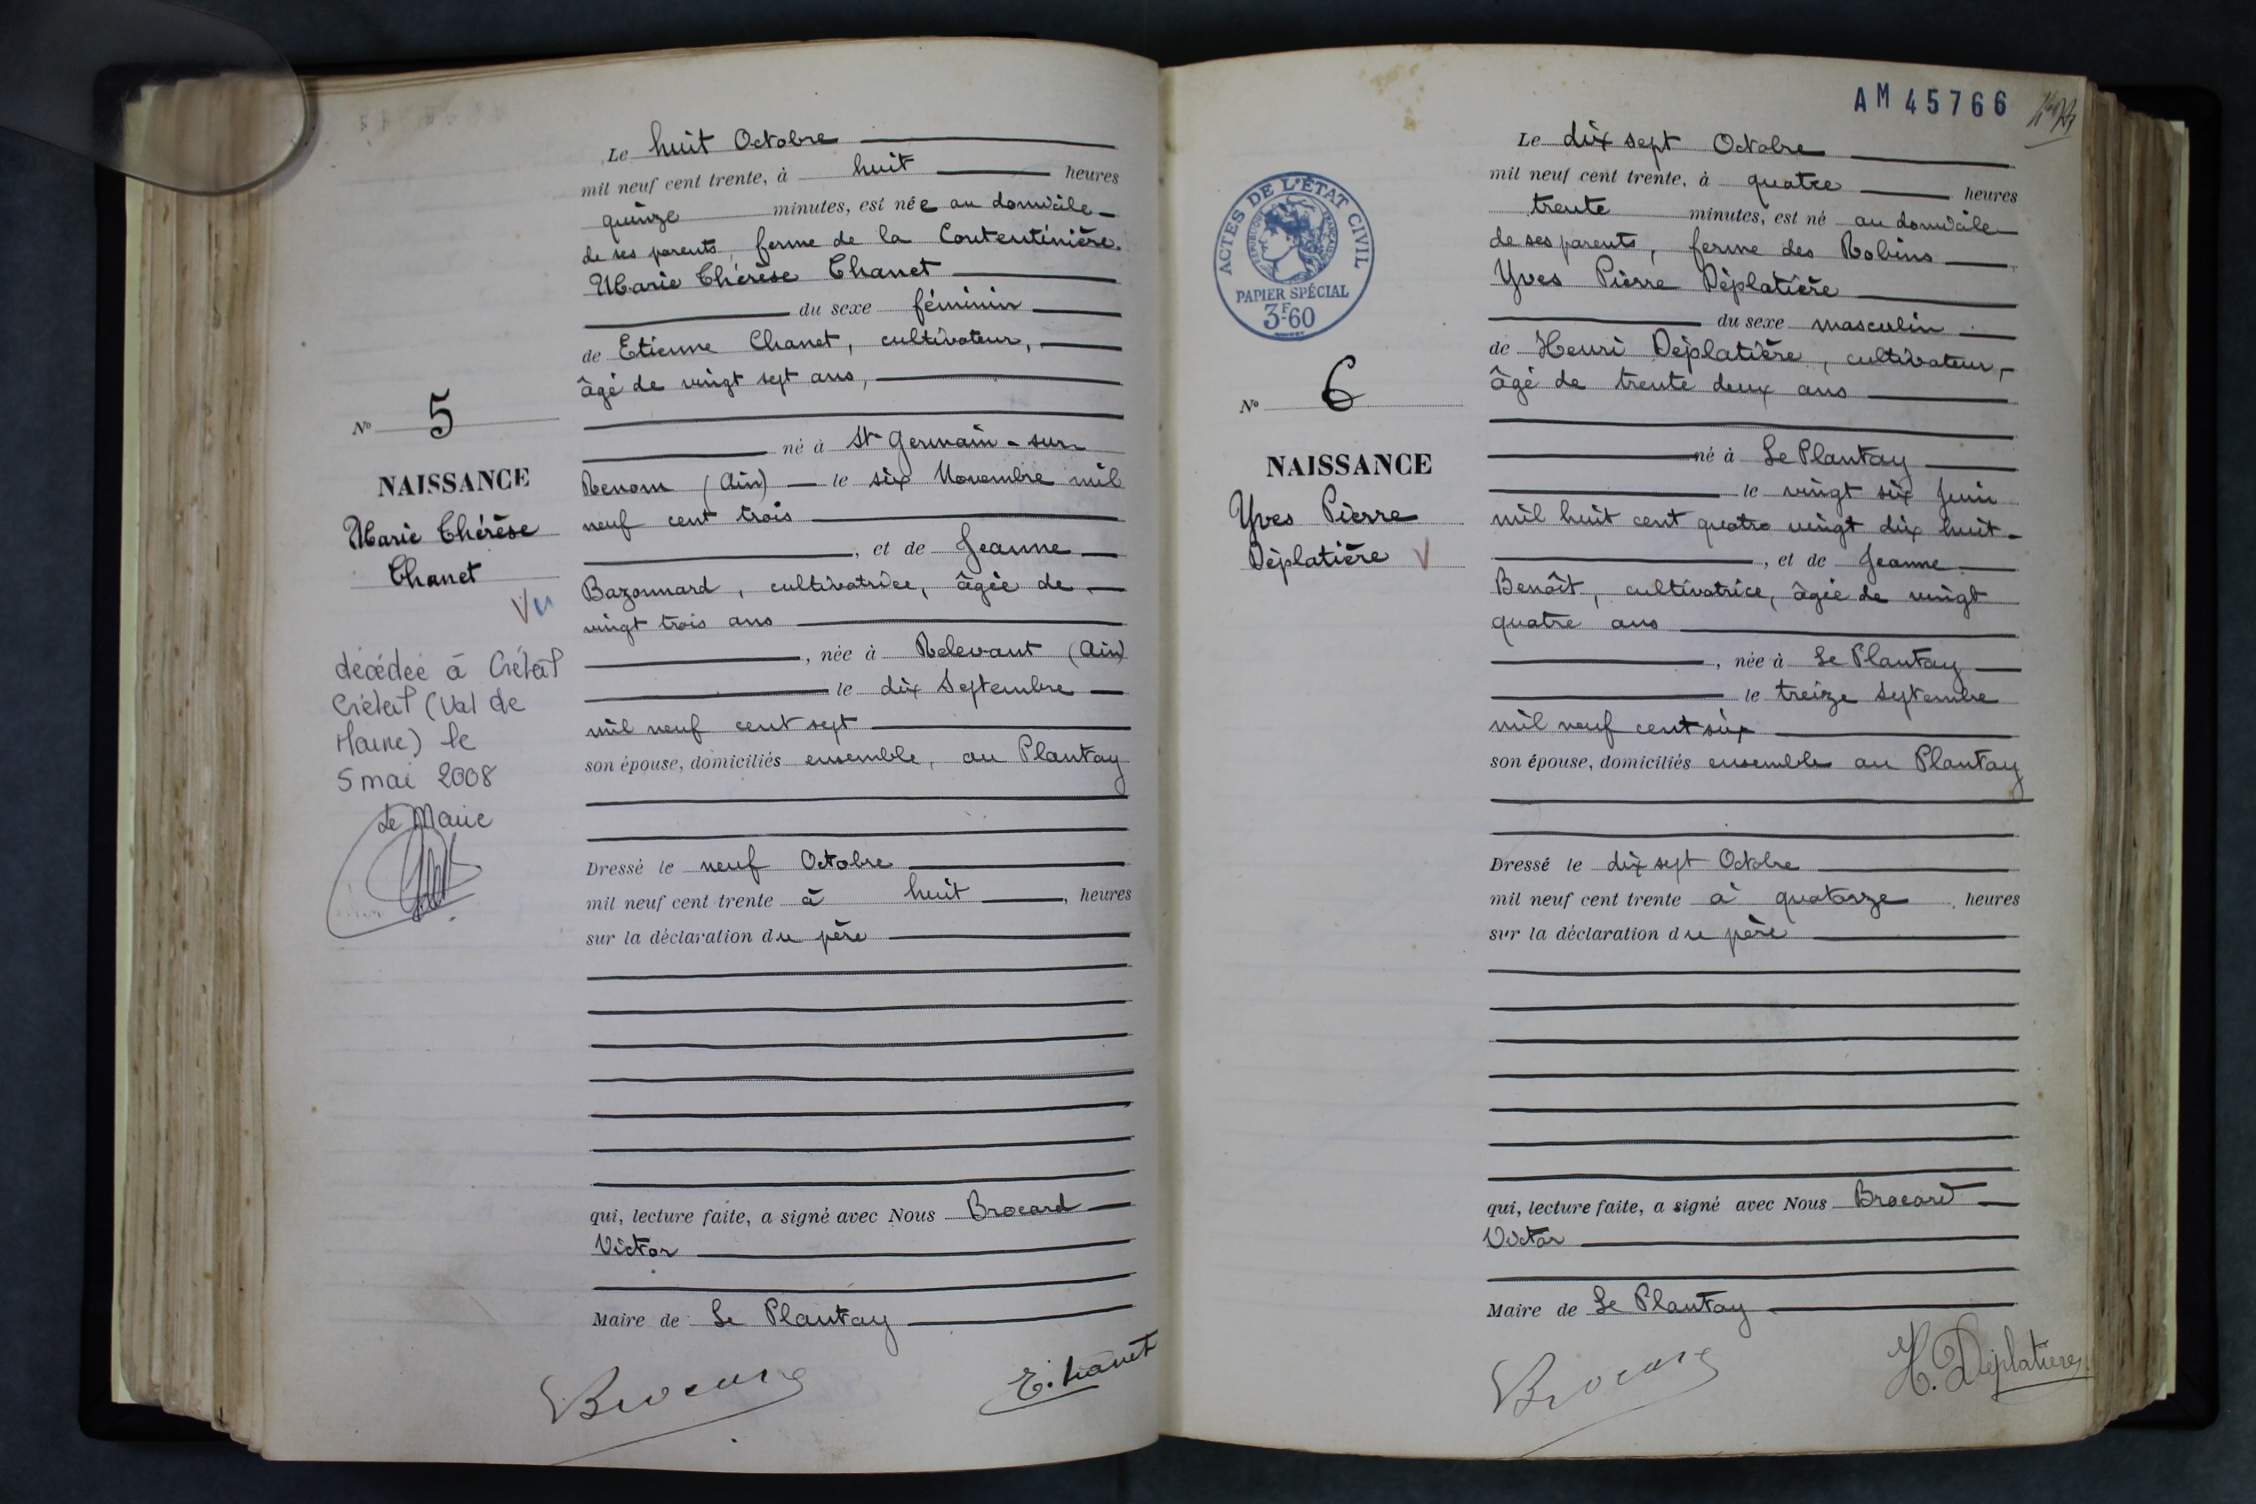 Le huit Octobre
mil neuf cent trente, à huit heures
quinze minutes, est née au domicile
de ses parents, ferme de la Contentinière.
Marie Thérèse Chanet
du sexe féminin
de Etienne Chanet, cultivateur,
âgé de vingt sept ans,
né à St Germain-sur
Renom (Ain) le six Novembre mil
neuf cent trois
, et de Jeanne
Bazonnard, cultivatrice, âgée de
vingt trois ans
, née à Relevant (Ain)
le dix Septembre
mil neuf cent sept
son épouse, domiciliés ensemble, au Plantay
Dressé le neuf Octobre
mil neuf cent trente à huit, heures
sur la déclaration du père
qui, lecture faite, a signé avec Nous Brocard
Victor
Maire de Le Plantay
Brocard
E. Chanet
No 5
NAISSANCE
Marie Thérèse
Chanet
Vu
décédée à Créteil
Créteil (Val de
Marne) le
5 mai 2008
Le Maire
AM 45766
ACTES DE L'ÉTAT CIVIL
RÉPUBLIQUE FRANÇAISE
PAPIER SPÉCIAL
3F60
No 6
NAISSANCE
Yves Pierre
Déplatière V
Le dix sept Octobre
mil neuf cent trente, à quatre heures
trente minutes, est né au domicile
de ses parents, ferme des Robins
Yves Pierre Déplatière
du sexe masculin
de Henri Déplatière, cultivateur,
âgé de trente deux ans
né à Le Plantay
le vingt six Juin
mil huit cent quatre vingt dix huit
, et de Jeanne
Benoît, cultivatrice, âgée de vingt
quatre ans
, née à Le Plantay
le treize Septembre
mil neuf cent six
son épouse, domiciliés ensemble au Plantay
Dressé le dix sept Octobre
mil neuf cent trente à quatorze, heures
sur la déclaration du père
qui, lecture faite, a signé avec Nous Brocard
Victor
Maire de Le Plantay
Brocard
H. Déplatière